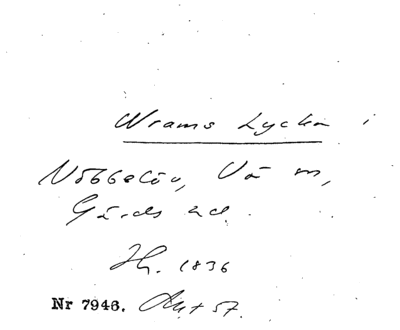 Wrams Lycka i
Nöbbelöv, Vä sn,
Gärds hd.
Jh. 1836
Nr 7946. Akt 57.